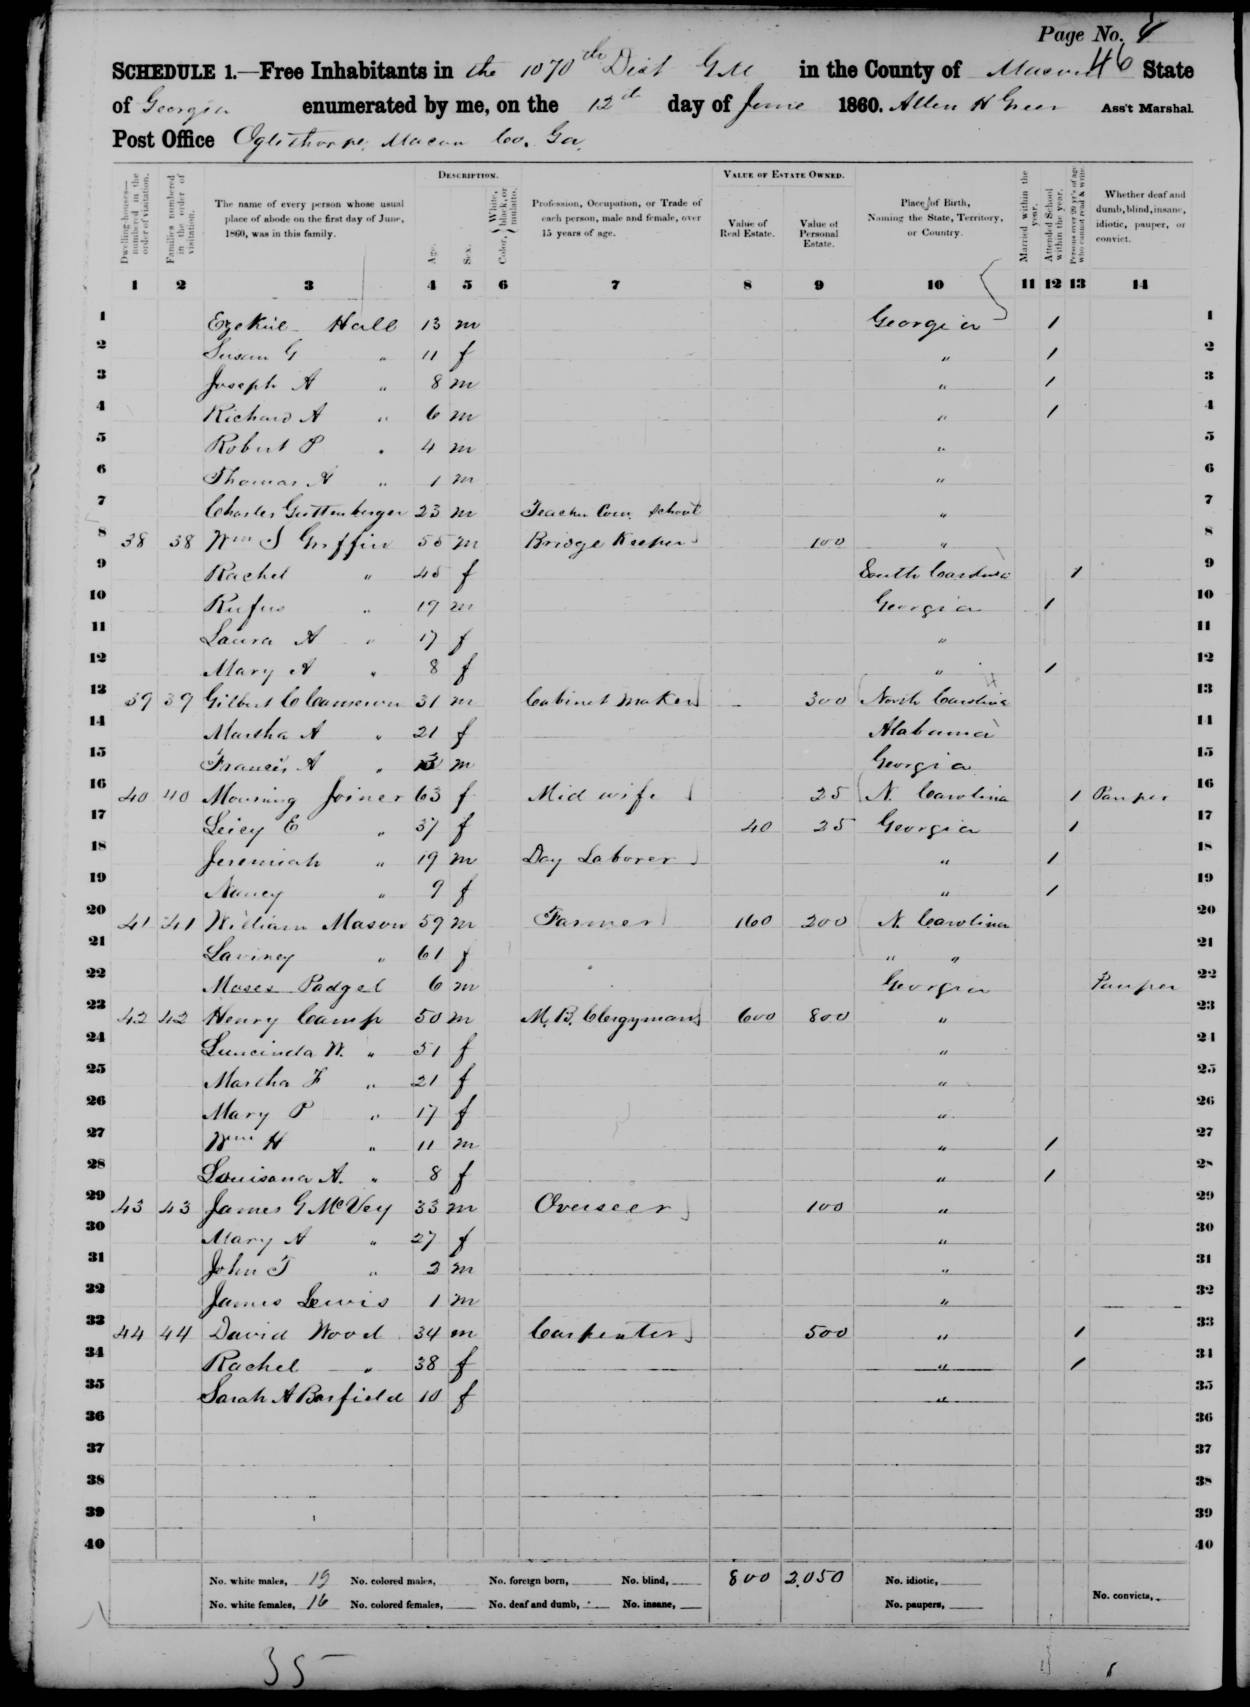 Page No. 4
46
SCHEDULE 1.—Free Inhabitants in the 1070th Dist GM in the County of Macon State
of Georgia enumerated by me, on the 12th day of June 1860. Allen H Greer Ass't Marshal.
Post Office Oglethorpe, Macon Co. Ga
Dwelling-houses—numbered in the order of visitation.
Families numbered in the order of visitation.
The name of every person whose usual place of abode on the first day of June, 1860, was in this family.
DESCRIPTION.
Age.
Sex.
Color, { White, black, or mulatto.
Profession, Occupation, or Trade of each person, male and female, over 15 years of age.
VALUE OF ESTATE OWNED.
Value of Real Estate.
Value of Personal Estate.
Place of Birth, Naming the State, Territory, or Country.
Married within the year.
Attended School within the year.
Persons over 20 yr's of age who cannot read & write.
Whether deaf and dumb, blind, insane, idiotic, pauper, or convict.
1 2 3 4 5 6 7 8 9 10 11 12 13 14
1 Ezekiel Hall 13 m Georgia 1 1
2 Susan G " 11 f " 1 2
3 Joseph A " 8 m " 1 3
4 Richard A " 6 m " 1 4
5 Robert P " 4 m " 5
6 Thomas A " 1 m " 6
7 Charles Guttenberger 23 m Teacher Com. School " 7
8 38 38 Wm S Griffin 55 m Bridge Keeper 100 " 8
9 Rachel " 45 f South Carolina 1 9
10 Rufus " 19 m Georgia 1 10
11 Laura A " 17 f " 11
12 Mary A " 8 f " 1 12
13 39 39 Gilbert C Cameron 31 m Cabinet Maker 300 North Carolina 13
14 Martha A " 21 f Alabama 14
15 Francis A " 3 m Georgia 15
16 40 40 Mourning Joiner 63 f Mid wife 25 N. Carolina 1 Pauper 16
17 Leicy E " 37 f 40 25 Georgia 1 17
18 Jeremiah " 19 m Day Laborer " 1 18
19 Nancy " 9 f " 1 19
20 41 41 William Mason 59 m Farmer 160 200 N. Carolina 20
21 Laviney " 61 f " " 21
22 Moses Padget 6 m Georgia Pauper 22
23 42 42 Henry Camp 50 m M. B. Clergyman 600 800 " 23
24 Luncinda W. " 51 f " 24
25 Martha F " 21 f " 25
26 Mary P " 17 f " 26
27 Wm H " 11 m " 1 27
28 Louisana A. " 8 f " 1 28
29 43 43 James G McVey 33 m Overseer 100 " 29
30 Mary A " 27 f " 30
31 John T " 2 m " 31
32 James Lewis 1 m " 32
33 44 44 David Wood 34 m Carpenter 500 " 1 33
34 Rachel " 38 f " 1 34
35 Sarah A Barfield 10 f " 35
36 36
37 37
38 38
39 39
40 40
No. white males, 19 No. colored males, No. foreign born, No. blind, 800 2,050 No. idiotic,
No. white females, 16 No. colored females, No. deaf and dumb, No. insane, No. paupers, No. convicts,
35